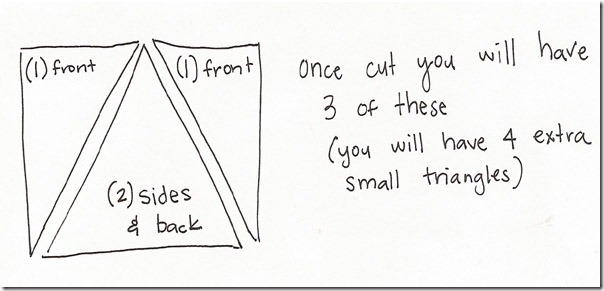 (1) front
(1) front
(2) sides
& back
Once cut you will have
3 of these
(you will have 4 extra
small triangles)